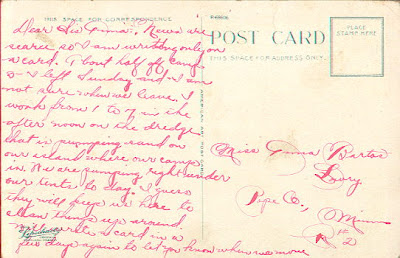 THIS SPACE FOR CORRESPONDENCE
Dear Sis Anna: News are
scarce so I am writing only on
a card. About half of camp
I left Sunday and I am
not sure when we leave. I
work from 1 to 7 in the
after noon on the dredge
that is pumping sand on
our island where our camp
is. We are pumping right under
our tents to day. I guess
they will keep us here to
clean things up around.
will write a card in a
few days again to let you know when we move
AMERICAN ART POST CARD
POST CARD
THIS SPACE FOR ADDRESS ONLY
PLACE
STAMP HERE
Miss Anna Bartos
Lowry
Pope Co., Minn
R#2